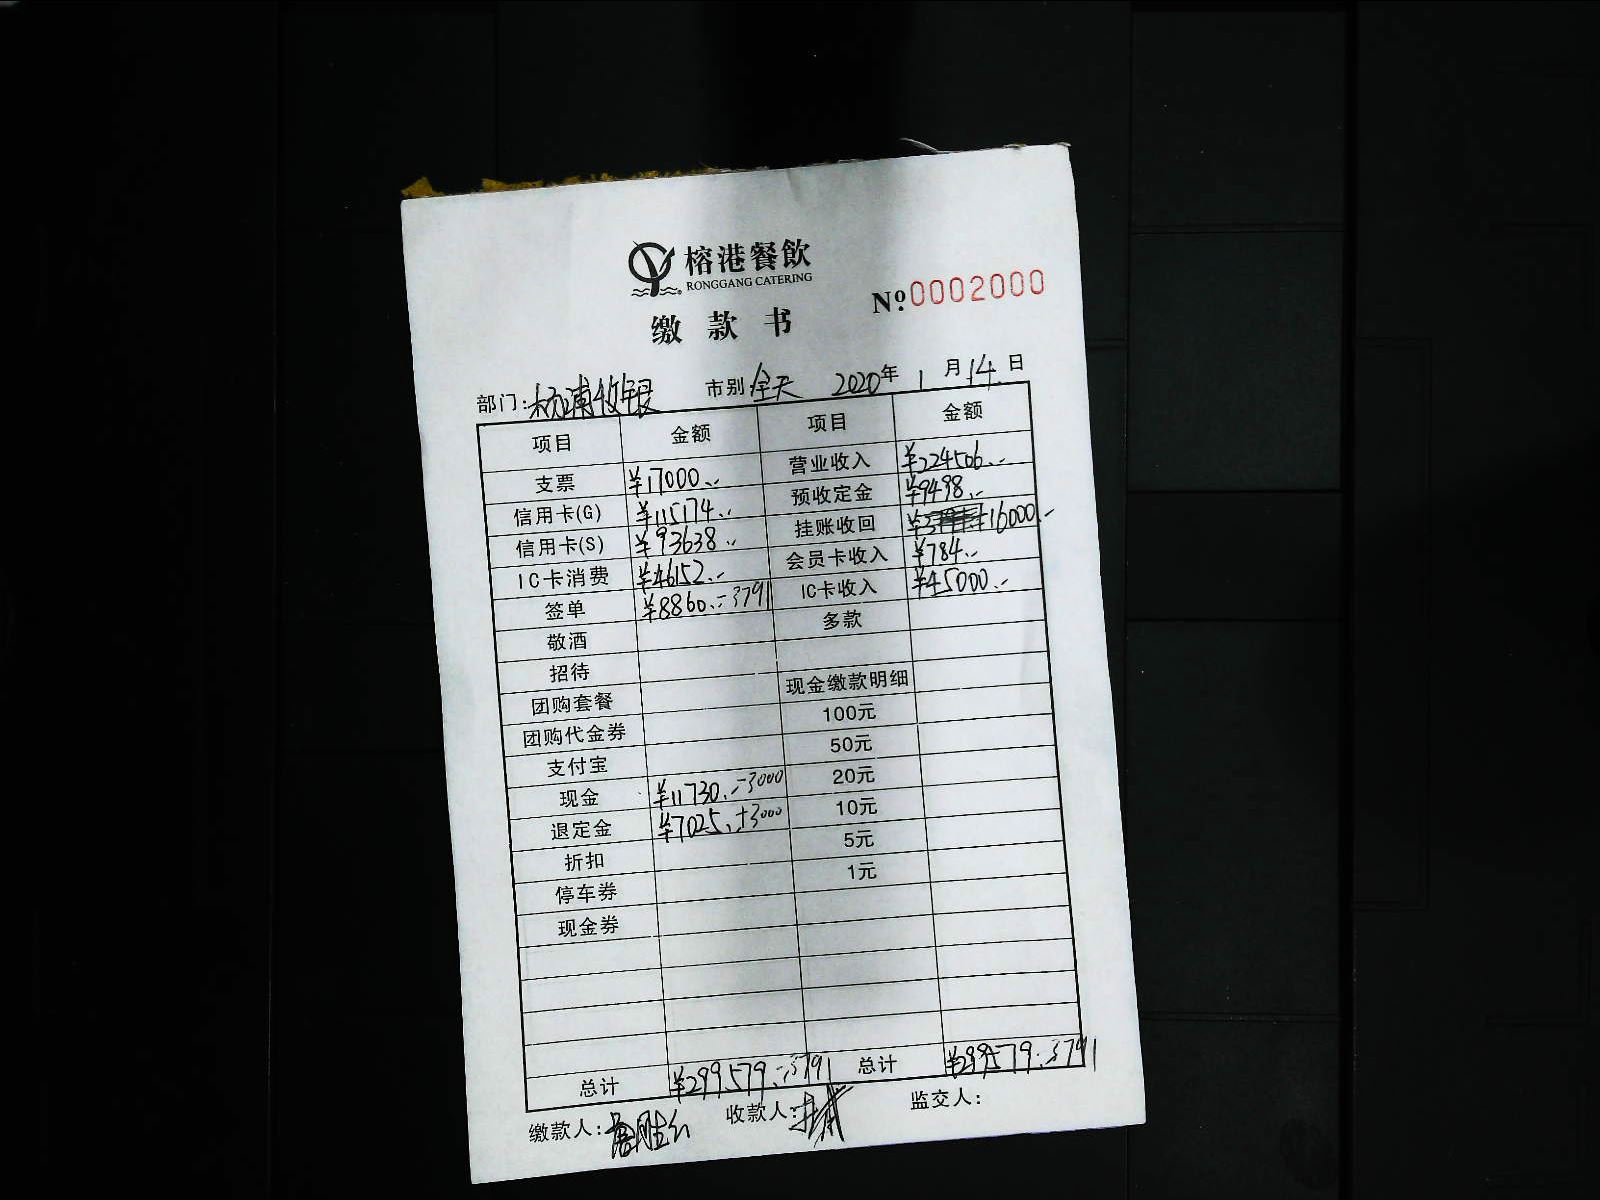 榕港餐飲
RONGGANG CATERING
№ 0002000
缴款书
部门: 杨浦收银 市别 全天 2020年 1月 14日
项目 金额 项目 金额
支票 ¥17000.- 营业收入 ¥224506.-
信用卡(G) ¥115174.- 预收定金 ¥9498.-
信用卡(S) ¥93638.- 挂账收回 ¥16000.-
IC卡消费 ¥46152.- 会员卡收入 ¥784.-
签单 ¥8860.- -3791 IC卡收入 ¥45000.-
敬酒 多款
招待
团购套餐 现金缴款明细
团购代金券 100元
支付宝 50元
现金 ¥11730.- -3000 20元
退定金 ¥7025. +3000 10元
折扣 5元
停车券 1元
现金券
总计 ¥299579.- -3791 总计 ¥299579. -3791
缴款人: 收款人: 监交人: